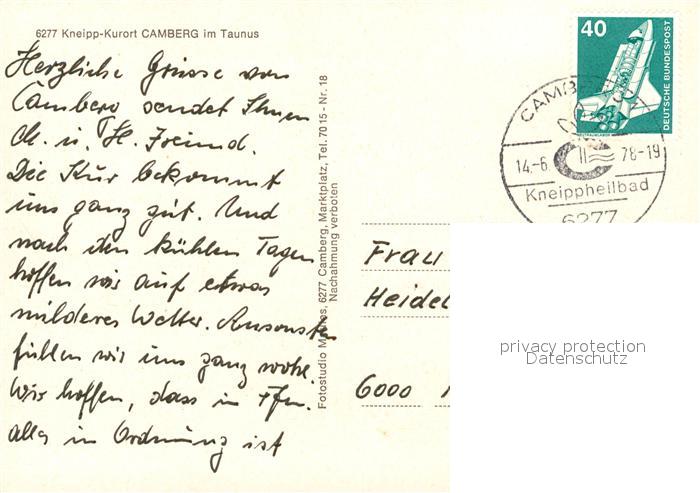 6277 Kneipp-Kurort CAMBERG im Taunus
Herzliche Grüsse von
Camberg sendet Ihnen
Die Kur bekommt
uns ganz gut. Und
nach den kühlen Tagen
hoffen wir auf etwas
milderes Wetter. Ansonsten
fühlen wir uns ganz wohl.
Wir hoffen, dass in Ffm.
alles in Ordnung ist
Fotostudio 6277 Camberg, Marktplatz, Tel. 7015 - Nr. 18
Nachahmung verboten
40
DEUTSCHE BUNDESPOST
14.-6. 78-19
Kneippheilbad
6277
Frau
Heidel
6000
privacy protection
Datenschutz